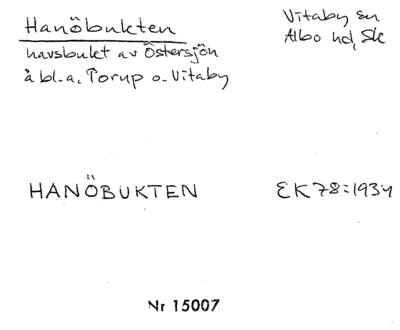 Hanöbukten
Vitaby sn
Albo hd, Sk
havsbukt av Östersjön
å bl.a. Torup o. Vitaby
HANÖBUKTEN
EK78:1934
Nr 15007